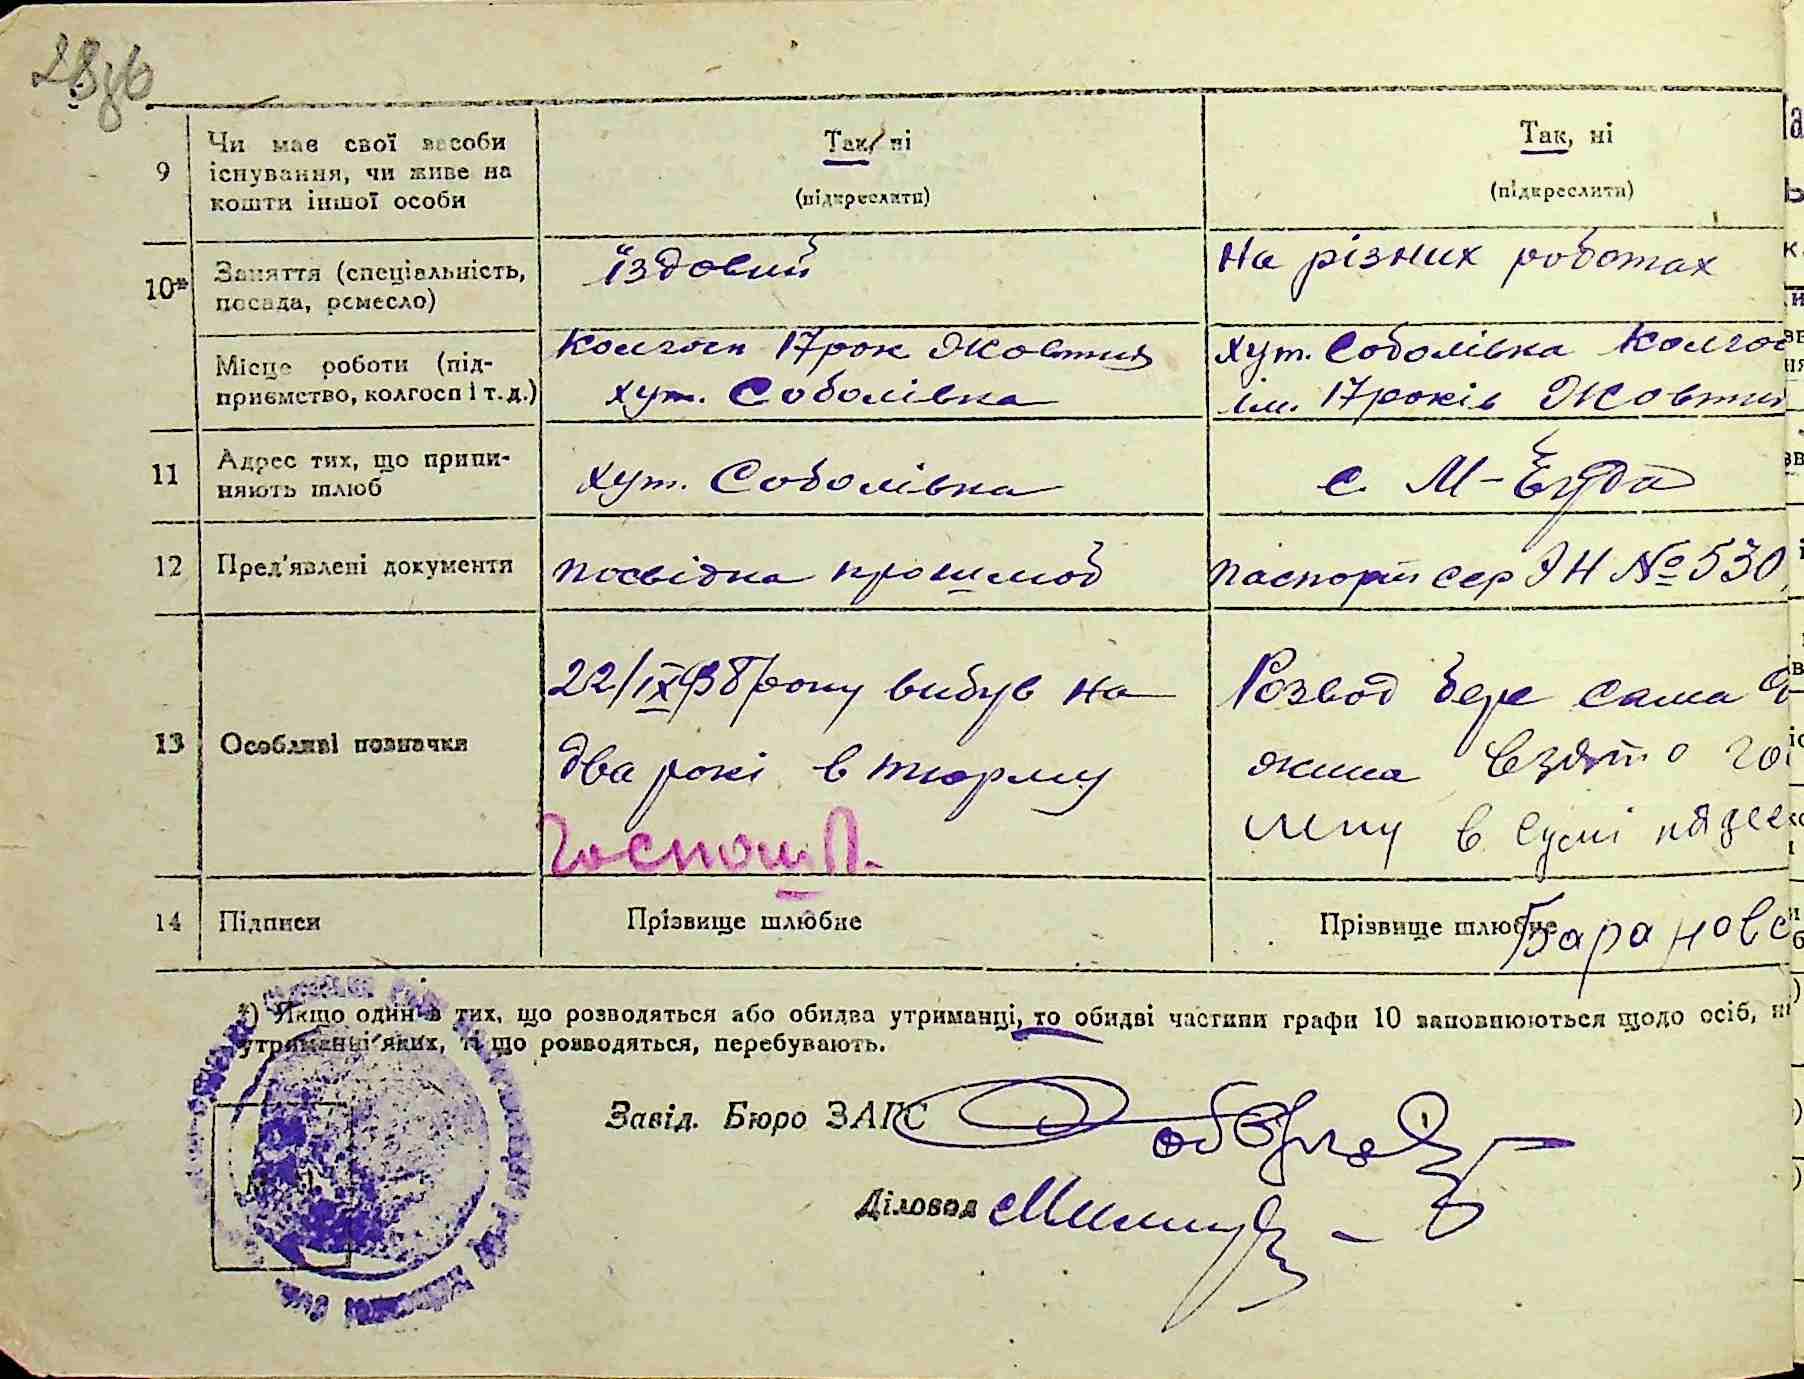 28зв
9
Чи має свої засоби
існування, чи живе на
кошти іншої особи
Так, ні
(підкреслити)
Так, ні
(підкреслити)
10*
Заняття (спеціальність,
посада, ремесло)
їздовий
На різних роботах
Місце роботи (під-
приємство, колгосп і т. д.)
Колгосп 17 рок Жовтня
хут. Соболівка
хут. Соболівка Колгос
ім. 17 років Жовтн
11
Адрес тих, що припи-
няють шлюб
хут. Соболівка
с. М-
12
Пред'явлені документи
посвідка
паспорт сер № 530
13
Особливі позначки
22/IX року вибув на
два рокі в тюрму
Розвод бере сама
жинка взято
в сумі
14
Підписи
Прізвище шлюбне
Прізвище шлюбне
Барановс
*) Якщо один з тих, що розводяться або обидва утриманці, то обидві частини графи 10 заповнюються щодо осіб, н
утриманні яких, ті що розводяться, перебувають.
Завід. Бюро ЗАГС
Діловод